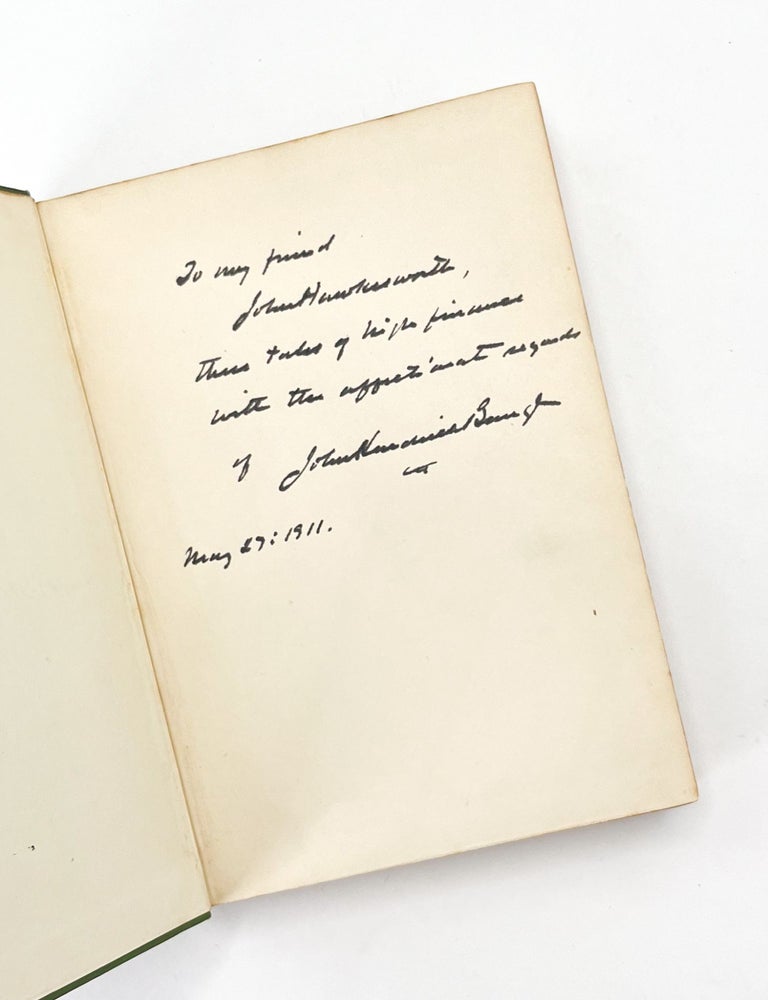 To my friend
John Hawkesworth,
these tales of high finance
with the affectionate regards
of John Kendrick Bangs
May 27: 1911.